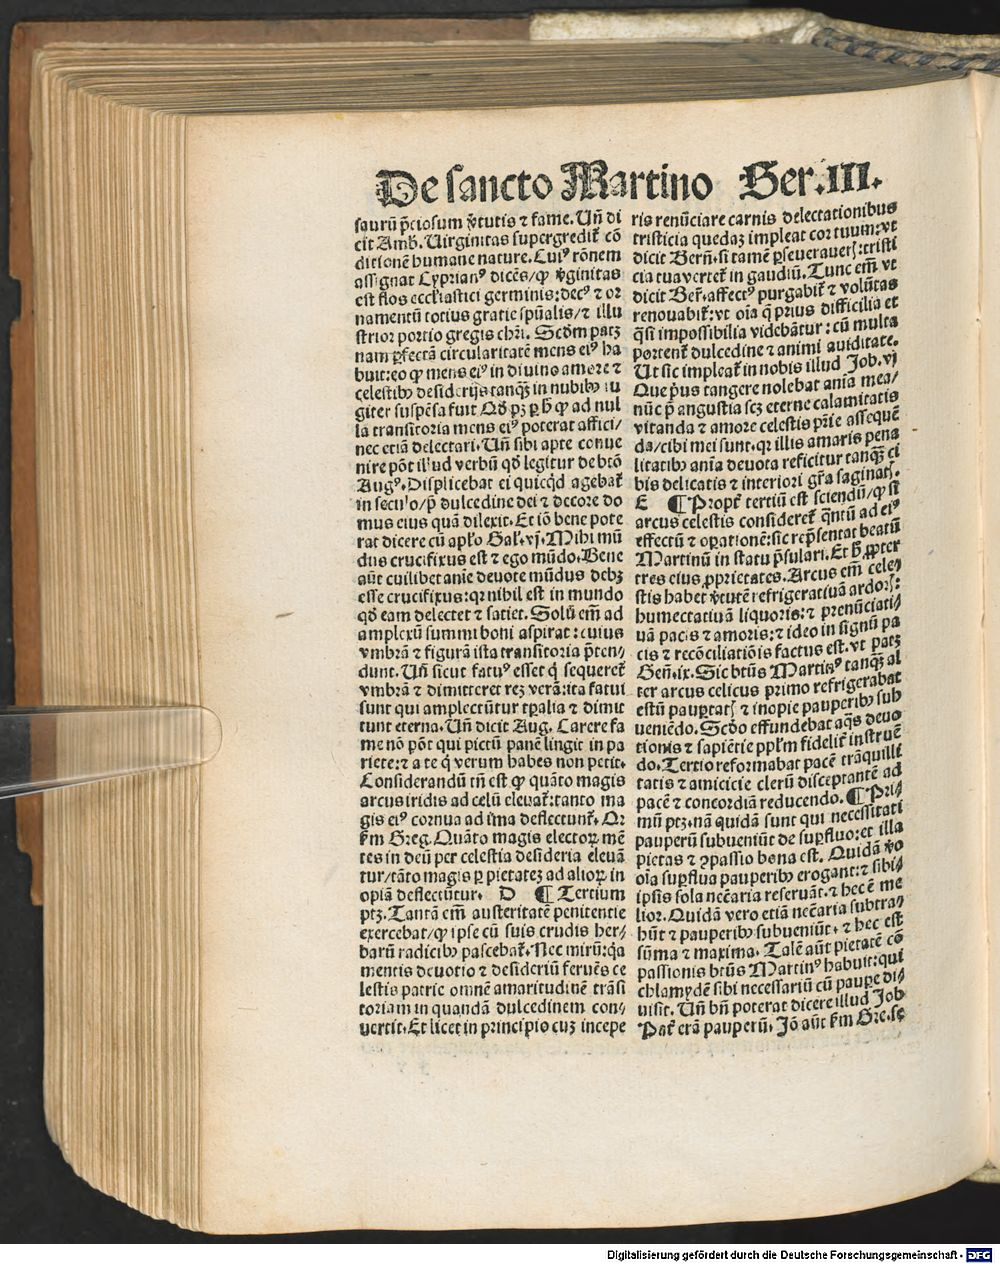 De sancto Martino Ser.III.
saurū p̄ciosum v̄tutis ⁊ fame. Uñ di
cit Amb. Uirginitas supergredit̄ cō
ditionē humane nature. Cuiꝰ rōnem
assignat Cyprianꝰ dicēs/ꝙ v̄ginitas
est flos ecclesiastici germinis: decꝰ ⁊ or
namentū totius gratie sp̄ualis/⁊ illu
strior portio gregis chri. Scd̄m patꝫ
nam ꝑfectā circularitatē mens eiꝰ ha
buit: eo ꝙ mens eiꝰ in diuino amore ⁊
celestibꝰ desiderijs tanqꝫ in nubibꝰ iu
giter suspēsa fuit Qd̓ pꝫ ꝑ h̓ ꝙ ad nul
la transitoria mens eiꝰ poterat affici/
nec etiā delectari. Uñ sibi apte conue
nire pōt illud verbū qd̓ legitur de btō
Augꝰ. Displicebat ei quicqd̓ agebat̄
in seculo/p̄ dulcedine dei ⁊ decore do
mus eius quā dilexit. Et iō bene pote
rat dicere cū apl̓o Gal̓. vj. Mihi mū
dus crucifixus est ⁊ ego mūdo. Bene
aūt cuilibet anīe deuote mūdus debꝫ
esse crucifixus: qꝛ nihil est in mundo
qd̓ eam delectet ⁊ satiet. Solū em̄ ad
amplexū summi boni aspirat: cuius
vmbrā ⁊ figurā ista transitoria p̄ten/
dunt. Uñ sicut fatuꝰ esset q̓ sequeret̄
vmbrā ⁊ dimitteret reꝫ verā: ita fatui
sunt qui amplectūtur tꝑalia ⁊ dimit
tunt eterna. Uñ dicit Aug. Carere fa
me nō pōt qui pictū panē lingit in pa
riete: ⁊ a te q̓ verum habes non petit.
Considerandū tñ est ꝙ quāto magis
arcus iridis ad celū eleuat̄: tanto ma
gis eiꝰ cornua ad ima deflectunt̄. Qꝛ
ẜm Greg. Quāto magis electoꝝ mē
tes in deū per celestia desideria eleuā
tur/tāto magis ꝑ pietateꝫ ad alioꝝ in
opiā deflectūtur. D ¶ Tertium
ptꝫ. Tantā em̄ austeritatē penitentie
exercebat/ꝙ ipse cū suis crudis her/
barū radicibꝰ pascebat̄. Nec mirū: qꝛ
mentis deuotio ⁊ desideriū feruēs ce
lestis patrie omnē amaritudinē trāsi
toriam in quandā dulcedinem con/
uertit. Et licet in principio cuꝫ incepe
ris renūciare carnis delectationibus
tristicia quedaꝫ impleat cor tuum: vt
dicit Berñ. si tamē ꝑseuerauerꝭ: tristi
cia tua vertet̄ in gaudiū. Tunc em̄ vt
dicit Ber̄. affectꝰ purgabit̄ ⁊ volūtas
renouabit̄: vt oīa q̄ prius difficilia et
q̄si impossibilia videbātur: cū multa
portent̄ dulcedine ⁊ animi auiditate.
Ut sic impleat̄ in nobis illud Job. vj
Que pͥus tangere nolebat anīa mea/
nūc p̄ angustia scꝫ eterne calamitatis
vitanda ⁊ amore celestis pr̄ie assequē
da/cibi mei sunt. qꝛ illis amaris pena
litatibꝰ anīa deuota reficitur tanqꝫ ci
bis delicatis ⁊ interiori gr̄a saginatꝭ.
E ¶ Propt̄ tertiū est sciendū/ꝙ si
arcus celestis consideret̄ q̄ntū ad eiꝰ
effectū ⁊ oꝑationē: sic rep̄sentat beatū
Martinū in statu p̄sulari. Et h̓ ꝓpter
tres eius ꝓprietates. Arcus em̄ cele/
stis habet v̄tutē refrigeratiuā ardorꝭ:
humectatiuā liquoris: ⁊ prenūciati/
uā pacis ⁊ amoris: ⁊ ideo in signū pa
cis ⁊ recōciliatiōis factus est. vt patꝫ
Geñ. ix. Sic btūs Martinꝰ tanqꝫ al
ter arcus celicus primo refrigerabat
estū pauꝑtatꝭ ⁊ inopie pauperibꝰ sub
ueniēdo. Scd̓o effundebat aq̄s deuo
tionis ⁊ sapiētie ppl̓m fidelit̄ instruē
do. Tertio reformabat pacē trāquilli
tatis ⁊ amicicie clerū disceptantē ad
pacē ⁊ concordiā reducendo. ¶ Pri/
mū ptꝫ. nā quidā sunt qui necessitati
pauperū subueniūt de suꝑfluo: et illa
pietas ⁊ ꝯpassio bona est. Quidā v̓o
oīa suꝑflua pauperibꝰ erogant: ⁊ sibi/
ipsis sola nec̄aria reseruāt. ⁊ hec ē me
lior. Quidā vero etiā nec̄aria subtra/
hūt ⁊ pauperibꝰ subueniūt. ⁊ hec est
sūma ⁊ maxima. Talē aūt pietatē cō
passionis btūs Martinꝰ habuit: qui
chlamydē sibi necessariū cū pauꝑe di/
uisit. Uñ bñ poterat dicere illud Job
Pat̄ erā pauperū. Jō aūt ẜm Gre. sę
Digitalisierung gefördert durch die Deutsche Forschungsgemeinschaft - DFG